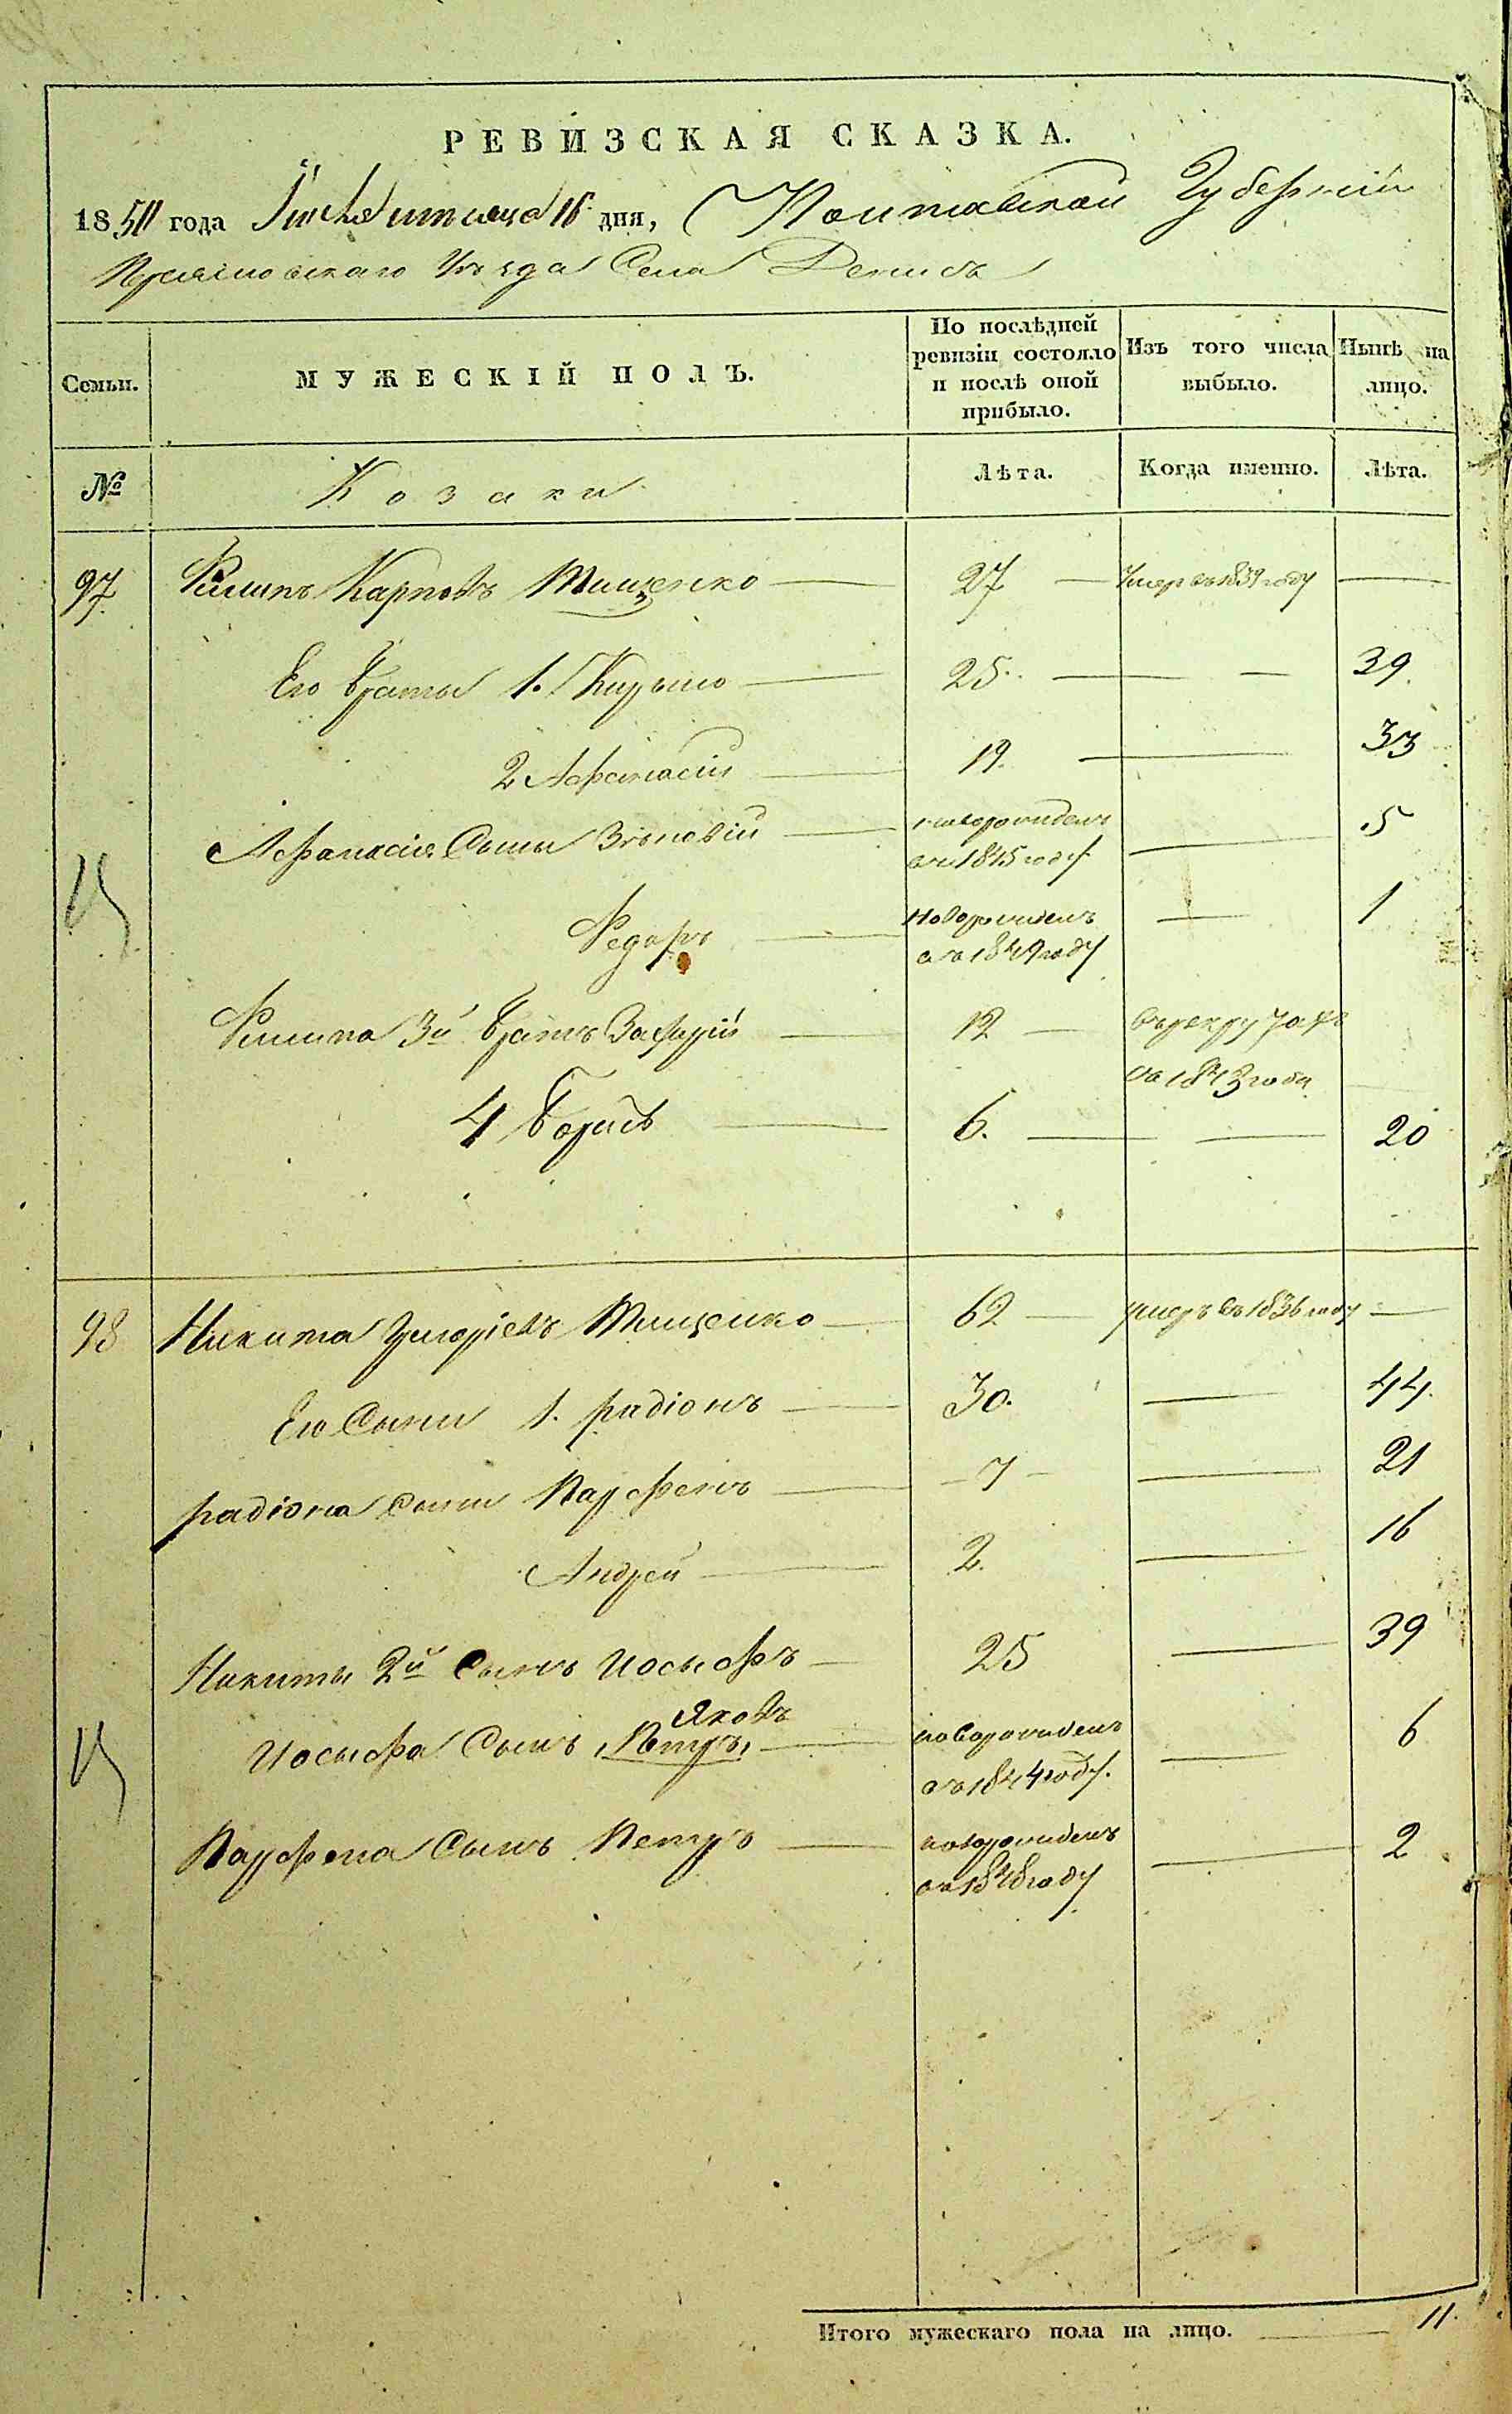 РЕВИЗСКАЯ СКАЗКА.
1850 года дня, Полтавской Губерніи
Уезда Села Денисъ
Семьи. МУЖЕСКІЙ ПОЛЪ. По послѣдней ревизіи состояло и послѣ оной прибыло. Изъ того числа выбыло. Нынѣ на лицо.
№ Козаки Лѣта. Когда именно. Лѣта.
97 Филипъ Карповъ Тищенко 27 Умеръ въ 1839 году
Его Браты 1. Кирыло 25. 39.
2 Афанасій 19. 33
Афанасія Сыны Зѣновій новорожденъ 5
въ 1845 году
Федоръ Новорожденъ 1
въ 1849 году
Филипа 3й Братъ 12 въ рекрутахъ
въ 1843 года
4 Борисъ 6. 20
98 Никита Григоріевъ Тищенко 62 умеръ въ 1836 году
Его Сыны 1. радіонъ 30. 44.
радіона Сыны Парфенъ 7 21
Андрей 2. 16
Никиты 2й Сынъ Иосыфъ 25 39
Яковъ
Иосыфа Сынъ Петръ новорожденъ 6
въ 1844 году.
Парфена Сынъ Петръ новорожденъ 2
въ 1848 году
Итого мужескаго пола на лицо. 11.